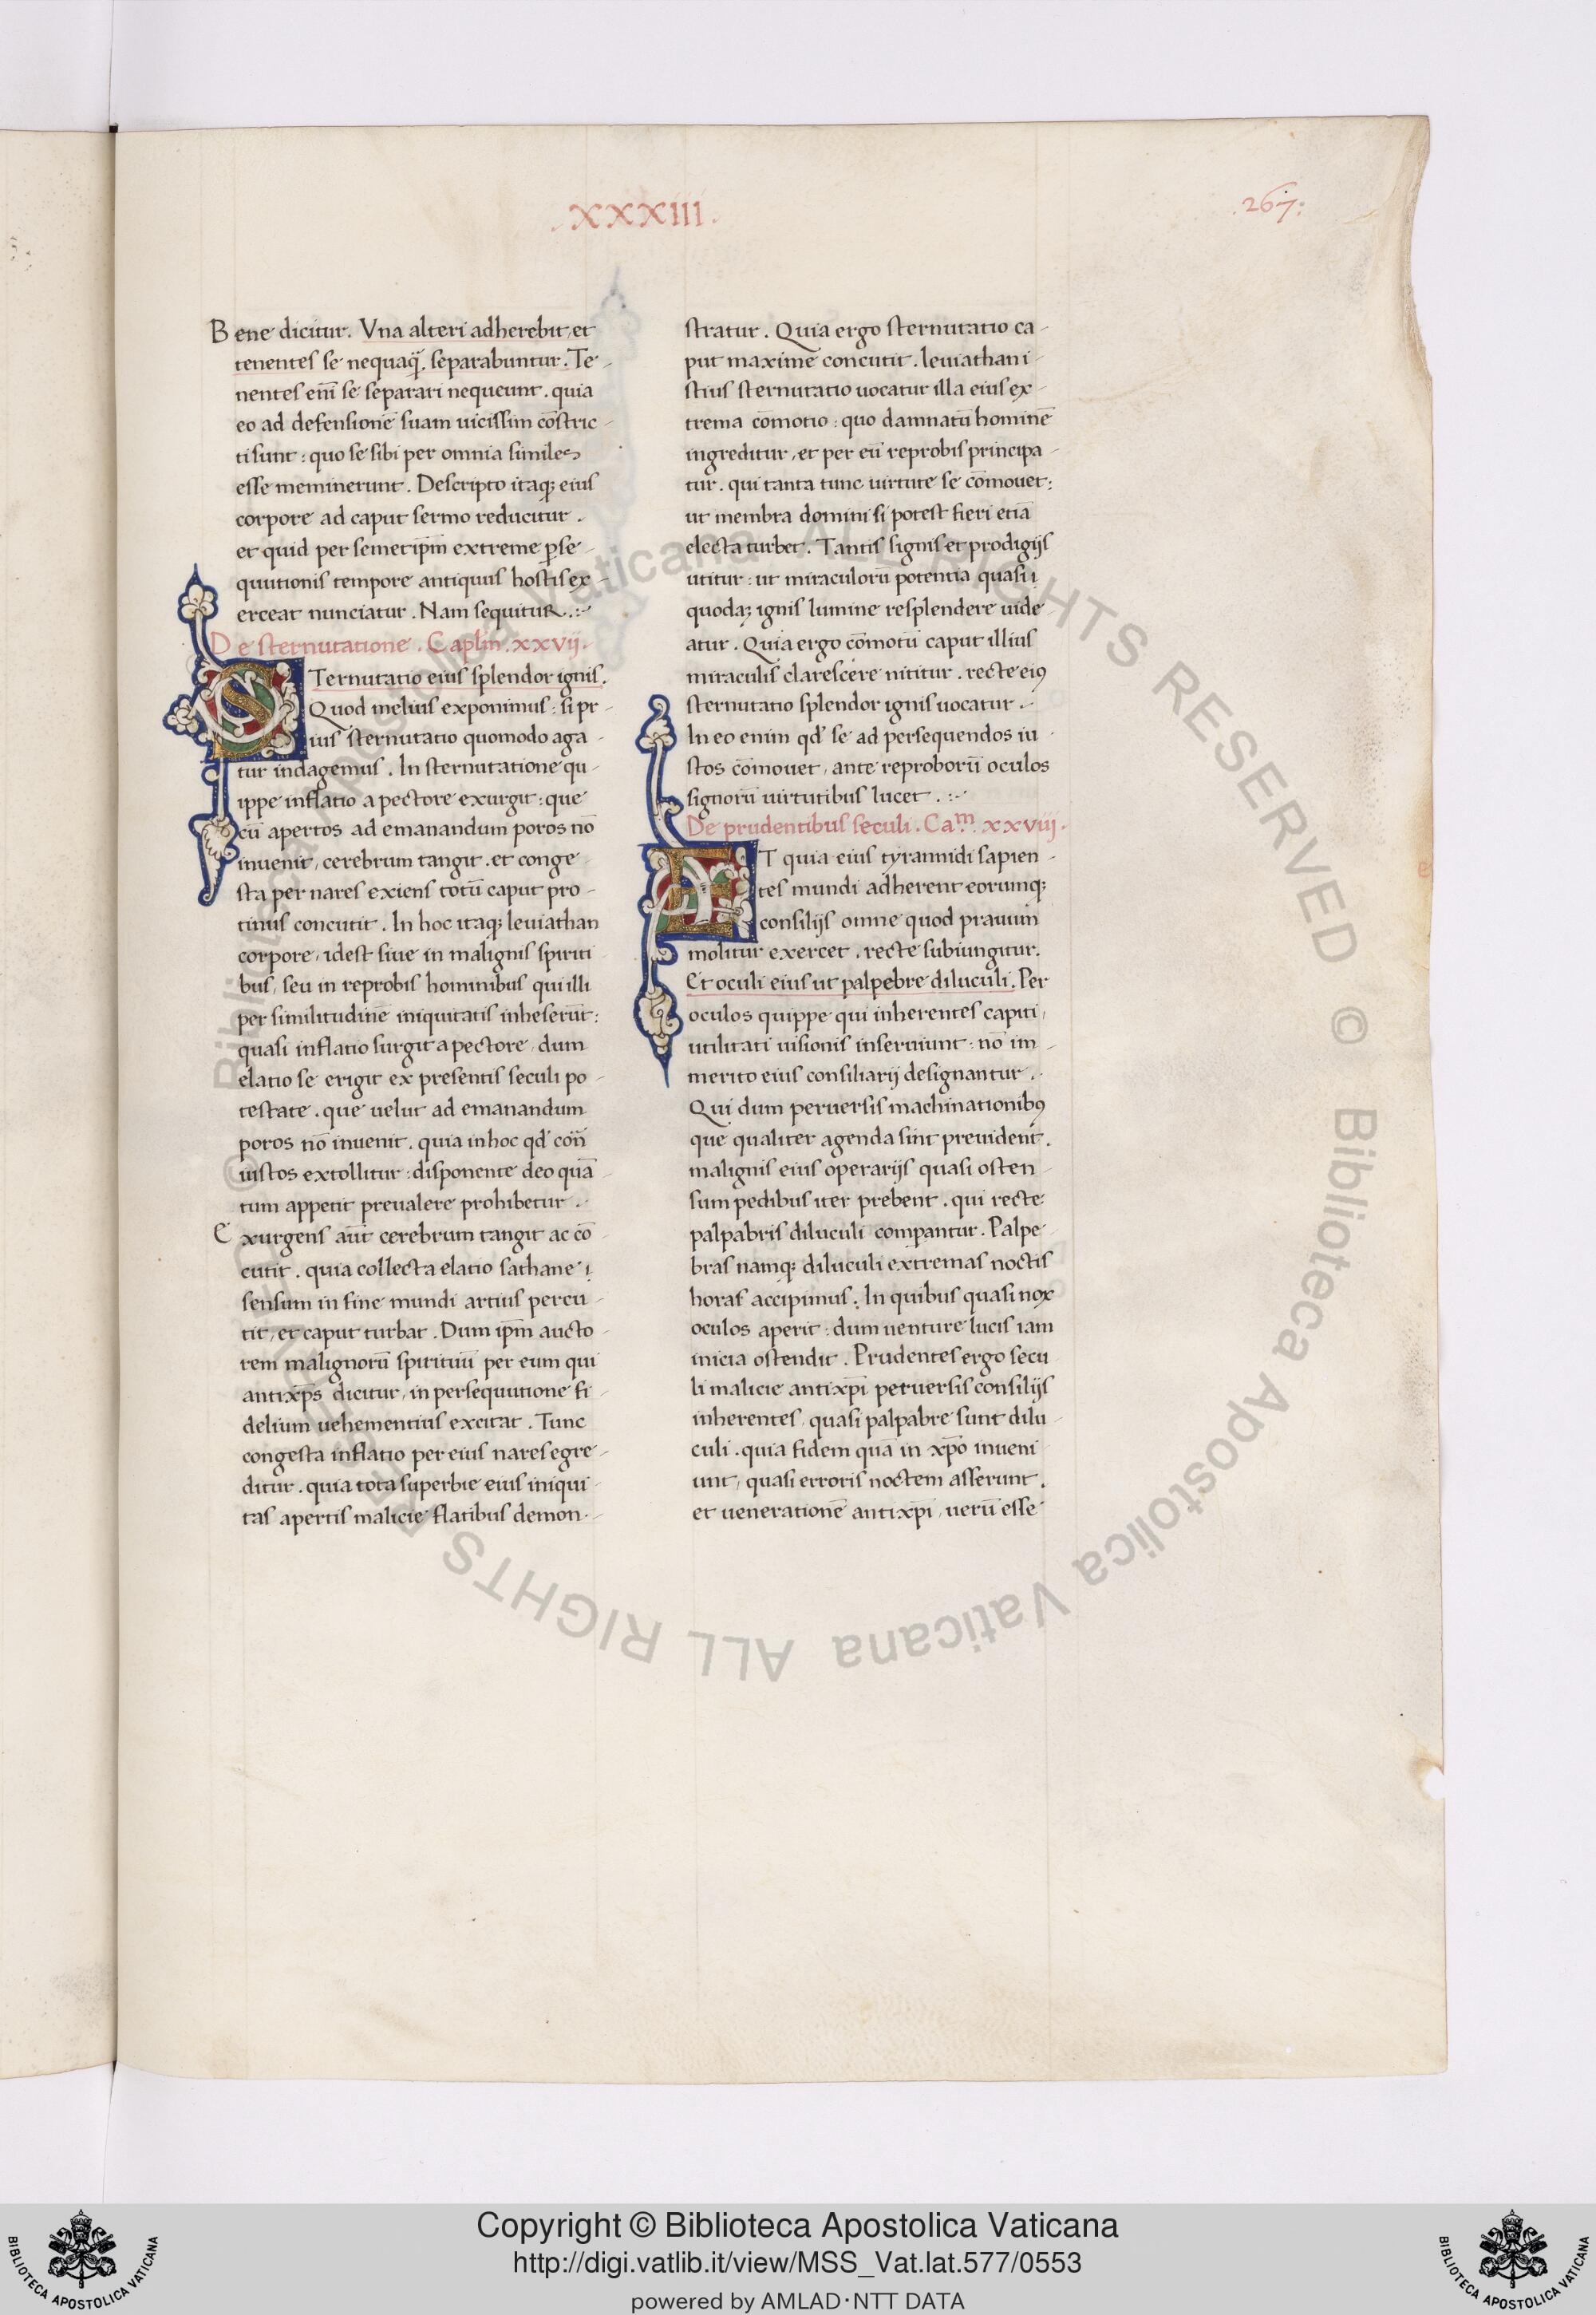 .XXXIII.
.267:
Bene dicitur. Vna alteri adherebit, et
tenentes se nequaq̃. separabuntur. Te-
nentes eni᷒ se separari nequeunt. quia
eo ad defensionē suam uicissim cōstric-
ti sunt: quo se sibi per omnia similes
esse meminerunt. Descripto itaqꝫ eius
corpore ad caput sermo reducitur.
et quid per semetip̄m extreme ꝑse-
quutionis tempore antiquus hostis ex-
erceat nunciatur. Nam sequituR.:~
De sternutatione. Caplm̄. xxvij.
STernutatio eius splendor ignis.
Quod melius exponimus: si pr-
ius sternutatio quomodo aga-
tur indagemus. In sternutatione qu-
ippe inflatio a pectore exurgit: que
cū apertos ad emanandum poros nō
inuenit, cerebrum tangit. et conge-
sta per nares exiens totū caput pro-
tinus concutit. In hoc itaqꝫ leuiathan
corpore, idest siue in malignis spiriti-
bus, seu in reprobis hominibus qui illi
per similitudinē iniquitatis inheserūt:
quasi inflatio surgit a pectore, dum
elatio se erigit ex presentis seculi po-
testate. que uelut ad emanandum
poros nō inuenit. quia in hoc qd̓ cōn̄
iustos extollitur: disponente deo quā-
tum appetit preualere prohibetur.-
Exurgens aūt cerebrum tangit ac cō-
cutit. quia collecta elatio sathane i̩
sensum in fine mundi artius percu-
tit, et caput turbat. Dum ip̄m aucto-
rem malignorū spirituū per eum qui
antixp̄s dicitur, in persequutione fi-
delium uehementius excitat. Tunc
congesta inflatio per eius nares egre-
ditur. quia tota superbie eius iniqui-
tas apertis malicie flatibus demon-
stratur. Quia ergo sternutatio ca-
put maxime concutit. leuiathan i-
stius sternutatio uocatur illa eius ex-
trema cōmotio: quo damnatū hominē
ingreditur, et per eū reprobis principa-
tur. qui tanta tunc uirtute se cōmouet:
ut membra domini si potest fieri etiā
electa turbet. Tantis signis et prodigijs
utitur: ut miraculorū potentia quasi i̩
quodaꝫ ignis lumine resplendere uide-
atur. Quia ergo cōmotū caput illius
miraculis clarescere nititur. recte eiꝰ
sternutatio splendor ignis uocatur.-
In eo enim qd̓ se ad persequendos iu-
stos cōmouet, ante reproborū oculos
signorū uirtutibus lucet.:~
De prudentibus seculi. Ca.m xxviij.
ET quia eius tyrannidi sapien-
tes mundi adherent eorumqꝫ
consilijs omne quod prauum
molitur exercet. recte subiungitur.
Et oculi eius ut palpebre diluculi. Per
oculos quippe qui inherentes capiti,
utilitati uisionis inseruiunt: nō im-
merito eius consiliarij designantur.-
Qui dum peruersis machinationibꝰ
que qualiter agenda sint preuident̄.
malignis eius operarijs quasi osten-
sum pedibus iter prebent. qui recte
palpabris diluculi comꝑantur. Palpe-
bras namqꝫ diluculi extremas noctis
horas accipimus. In quibus quasi nox
oculos aperit: dum uenture lucis iam
inicia ostendit. Prudentes ergo secu-
li malicie antixp̄i peruersis consilijs
inherentes, quasi palpabre sunt dilu-
culi. quia fidem quā in xp̄o inueni-
unt, quasi erroris noctem asserunt.
et uenerationē antixp̄i, uerū esse
© Biblioteca Apostolica Vaticana ALL RIGHTS RESERVED © Biblioteca Apostolica Vaticana ALL RIGHTS RESERVED
BIBLIOTECA APOSTOLICA VATICANA
Copyright © Biblioteca Apostolica Vaticana
http://digi.vatlib.it/view/MSS_Vat.lat.577/0553
powered by AMLAD·NTT DATA
BIBLIOTECA APOSTOLICA VATICANA